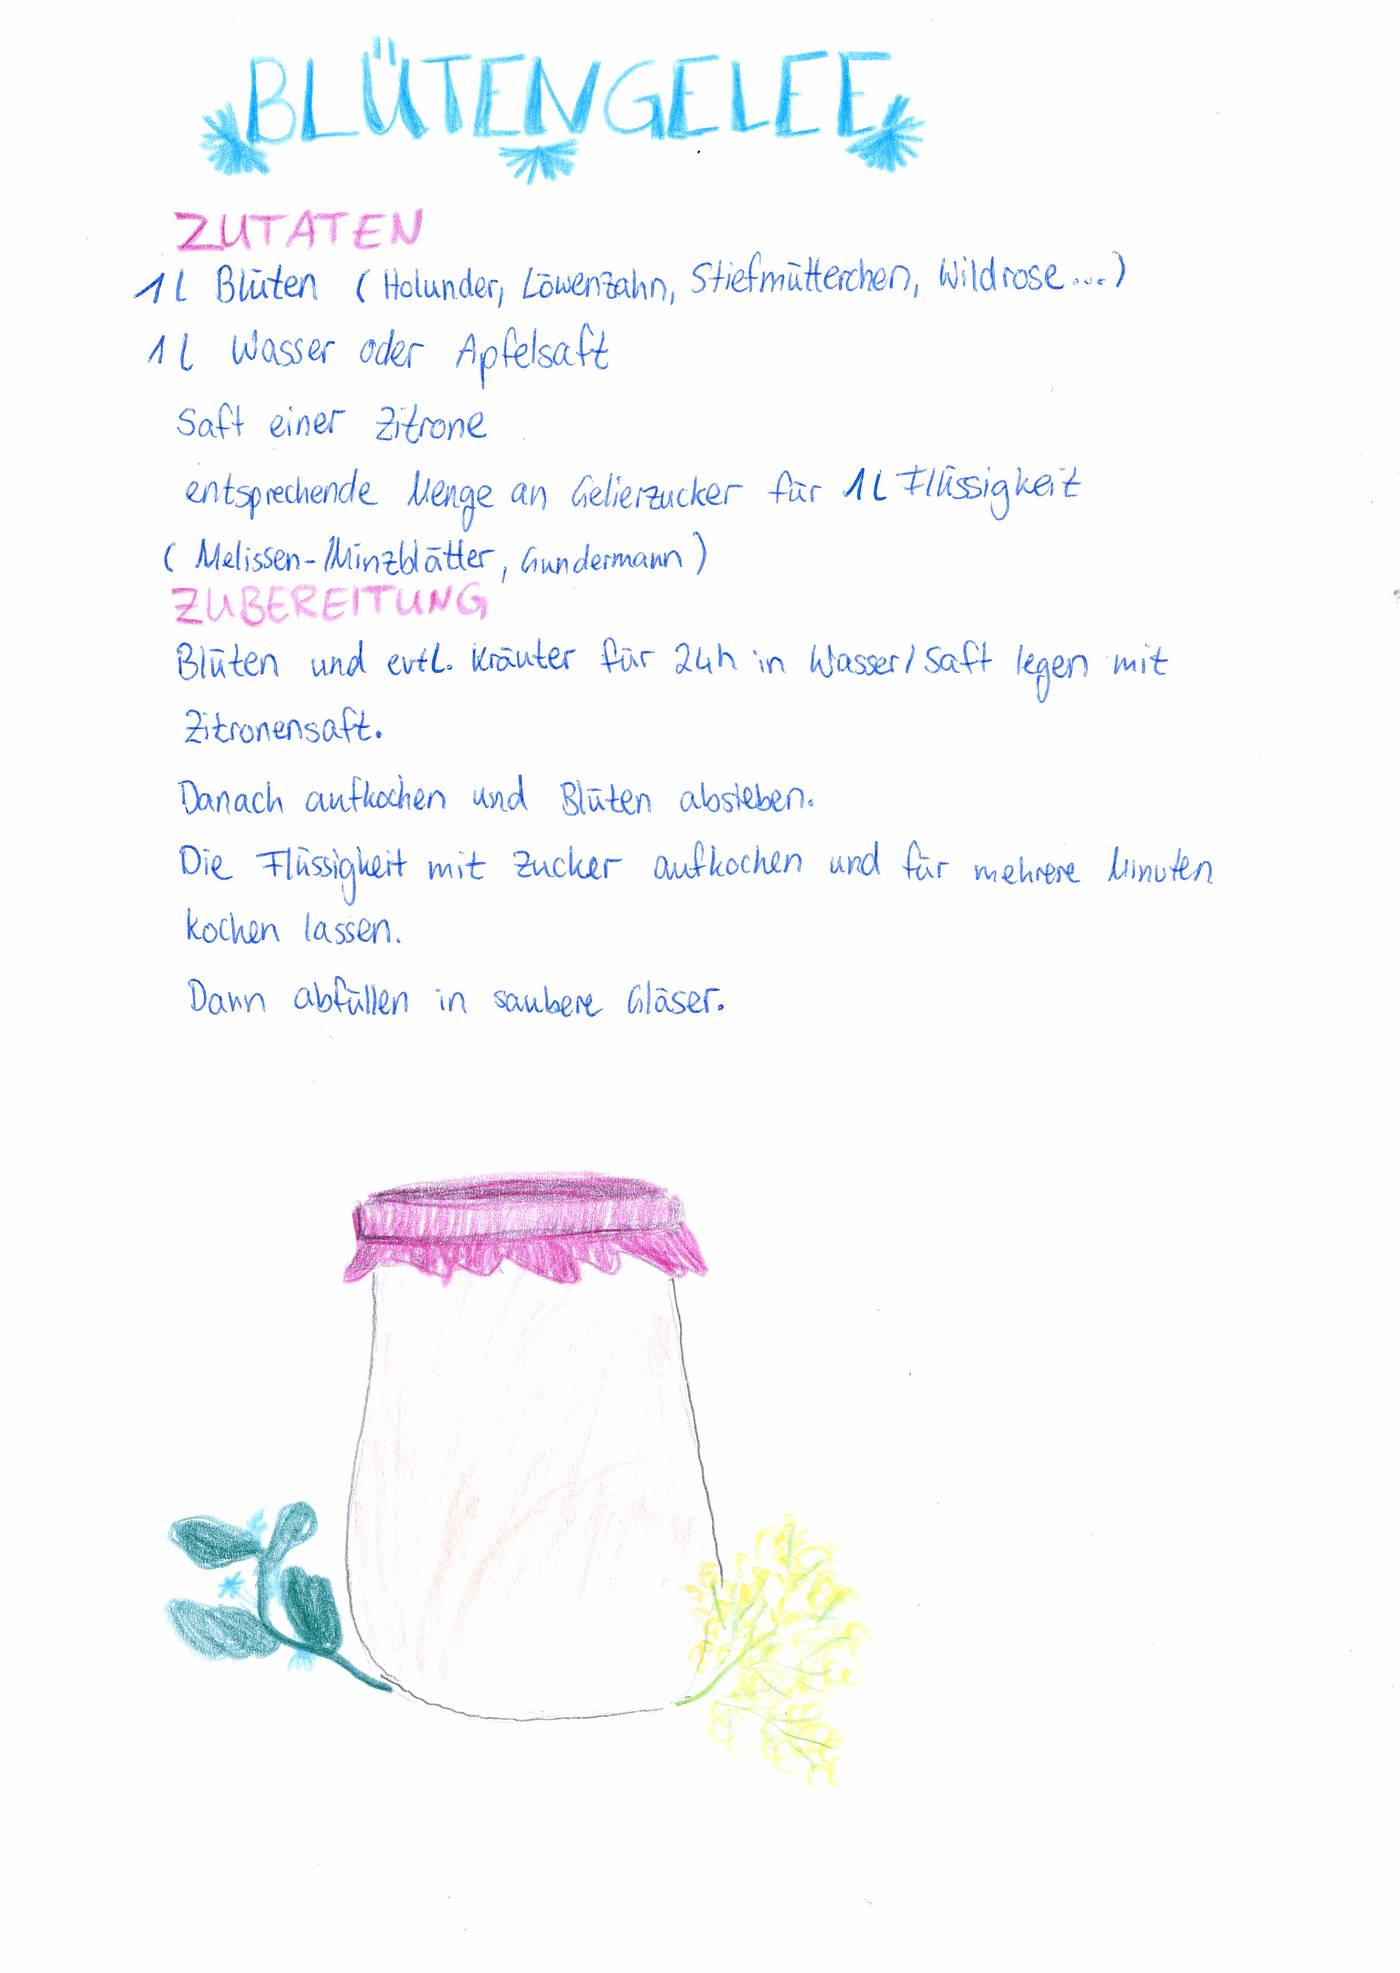 BLÜTENGELEE
ZUTATEN
1 l Blüten (Holunder, Löwenzahn, Stiefmütterchen, Wildrose...)
1 l Wasser oder Apfelsaft
Saft einer Zitrone
entsprechende Menge an Gelierzucker für 1 l Flüssigkeit
(Melissen-/Minzblätter, Gundermann)
ZUBEREITUNG
Blüten und evtl. Kräuter für 24h in Wasser/Saft legen mit
Zitronensaft.
Danach aufkochen und Blüten absieben.
Die Flüssigkeit mit Zucker aufkochen und für mehrere Minuten
kochen lassen.
Dann abfüllen in saubere Gläser.